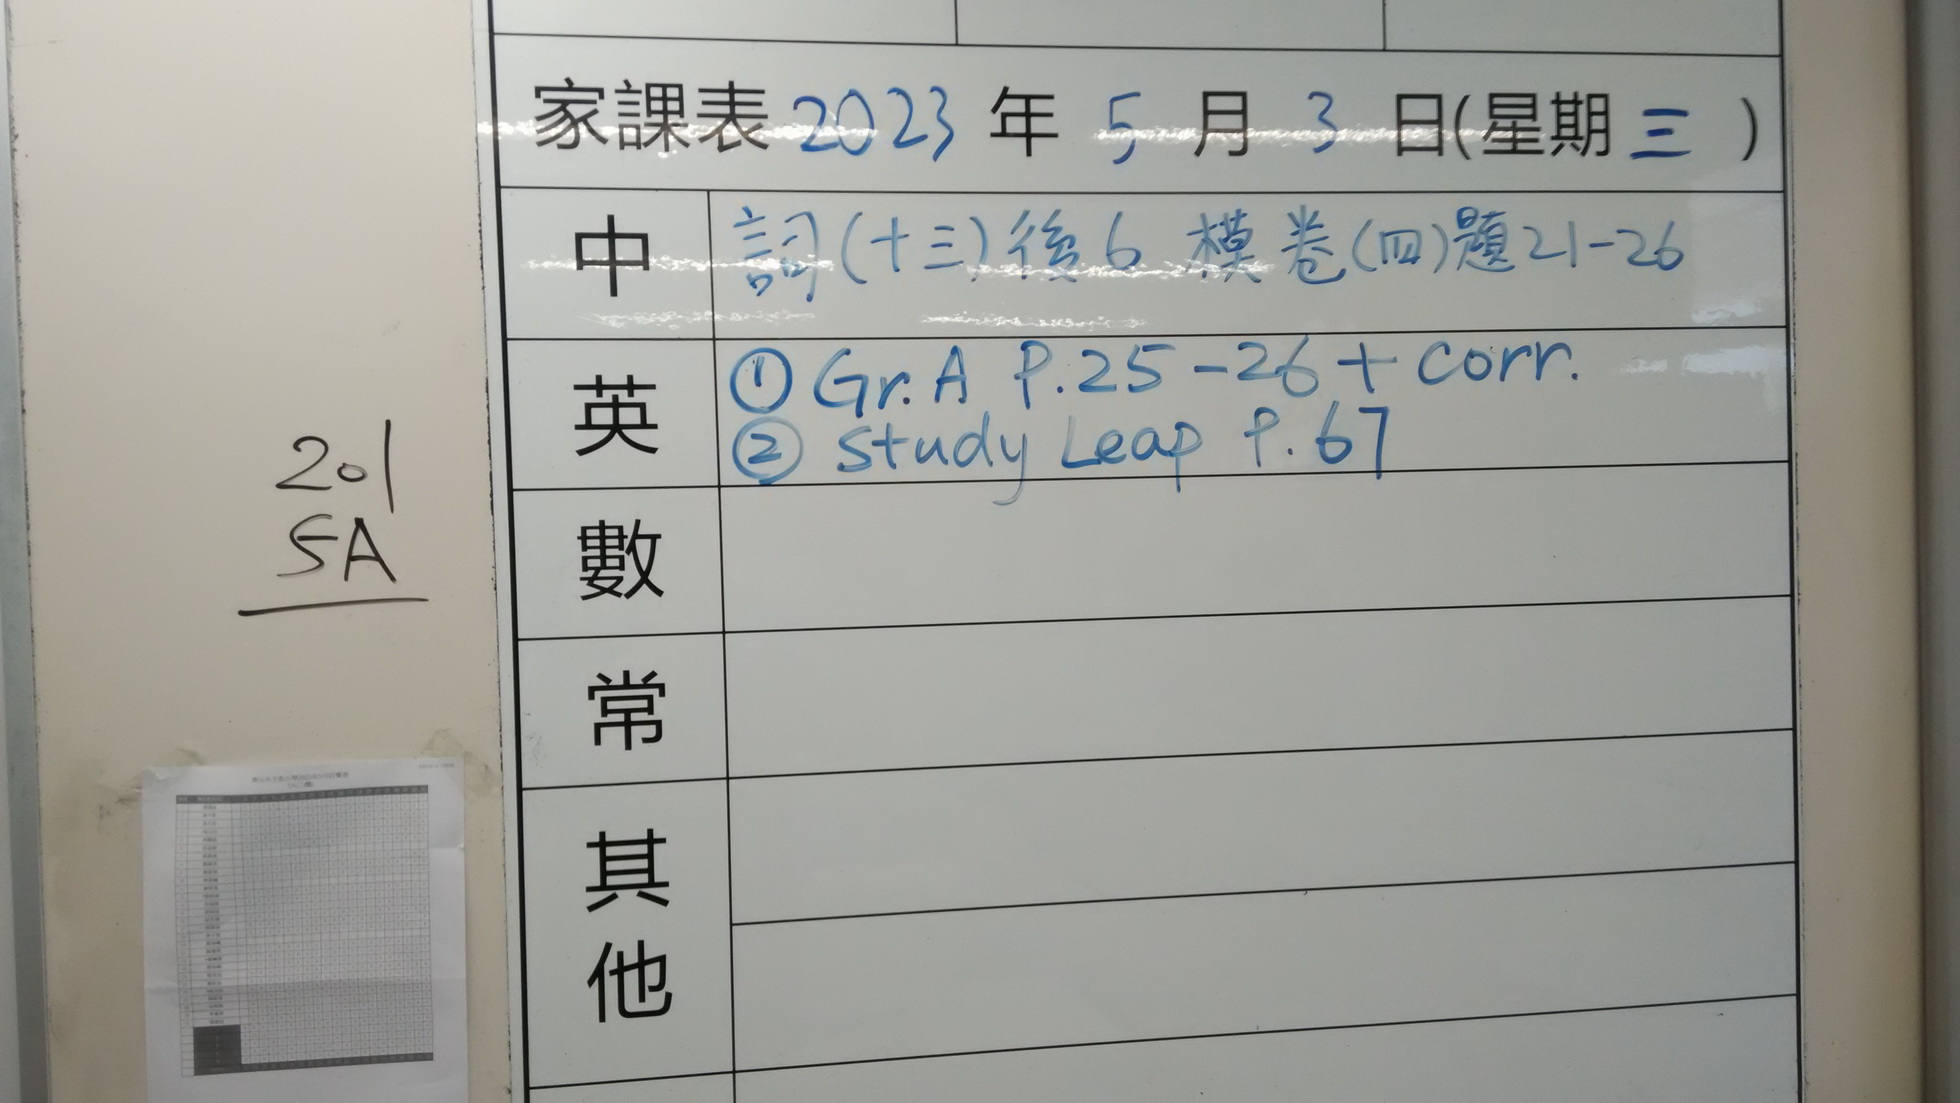 家課表 2023 年 5 月 3 日(星期三)
中 詞(十三)後6 模卷(四)題21-26
英 ① Gr.A P.25-26 + corr.
② Study Leap P.67
數
常
其他
201
5A